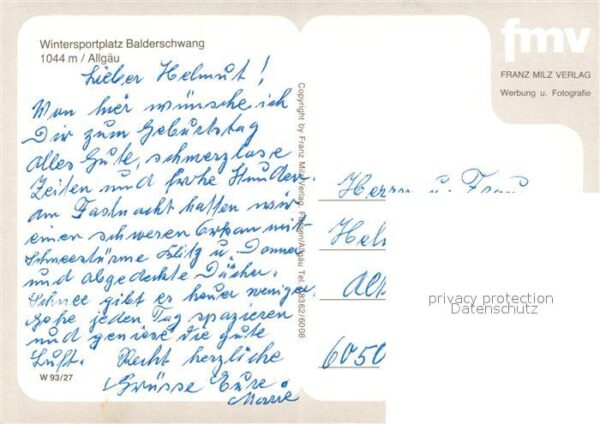 Wintersportplatz Balderschwang
1044 m / Allgäu
Lieber Helmut!
Von hier wünsche ich
Dir zum Geburtstag
alles Gute, schmerzlose
Zeiten und frohe Stunden.
Am Fastnacht hatten wir
einen schweren Orkan mit
Schneestürme Blitz u. Donner
und abgedeckte Dächer.
Schnee gibt es heuer weniger.
Gehe jeden Tag spazieren
und geniese die gute
Luft. Recht herzliche
Grüsse Eure
Marie
W 93/27
Copyright by Franz Milz Verlag Füssen/Allgäu Tel. 08362/6008
fmv
FRANZ MILZ VERLAG
Werbung u. Fotografie
Herrn u. Frau
Hel
6050
privacy protection
Datenschutz